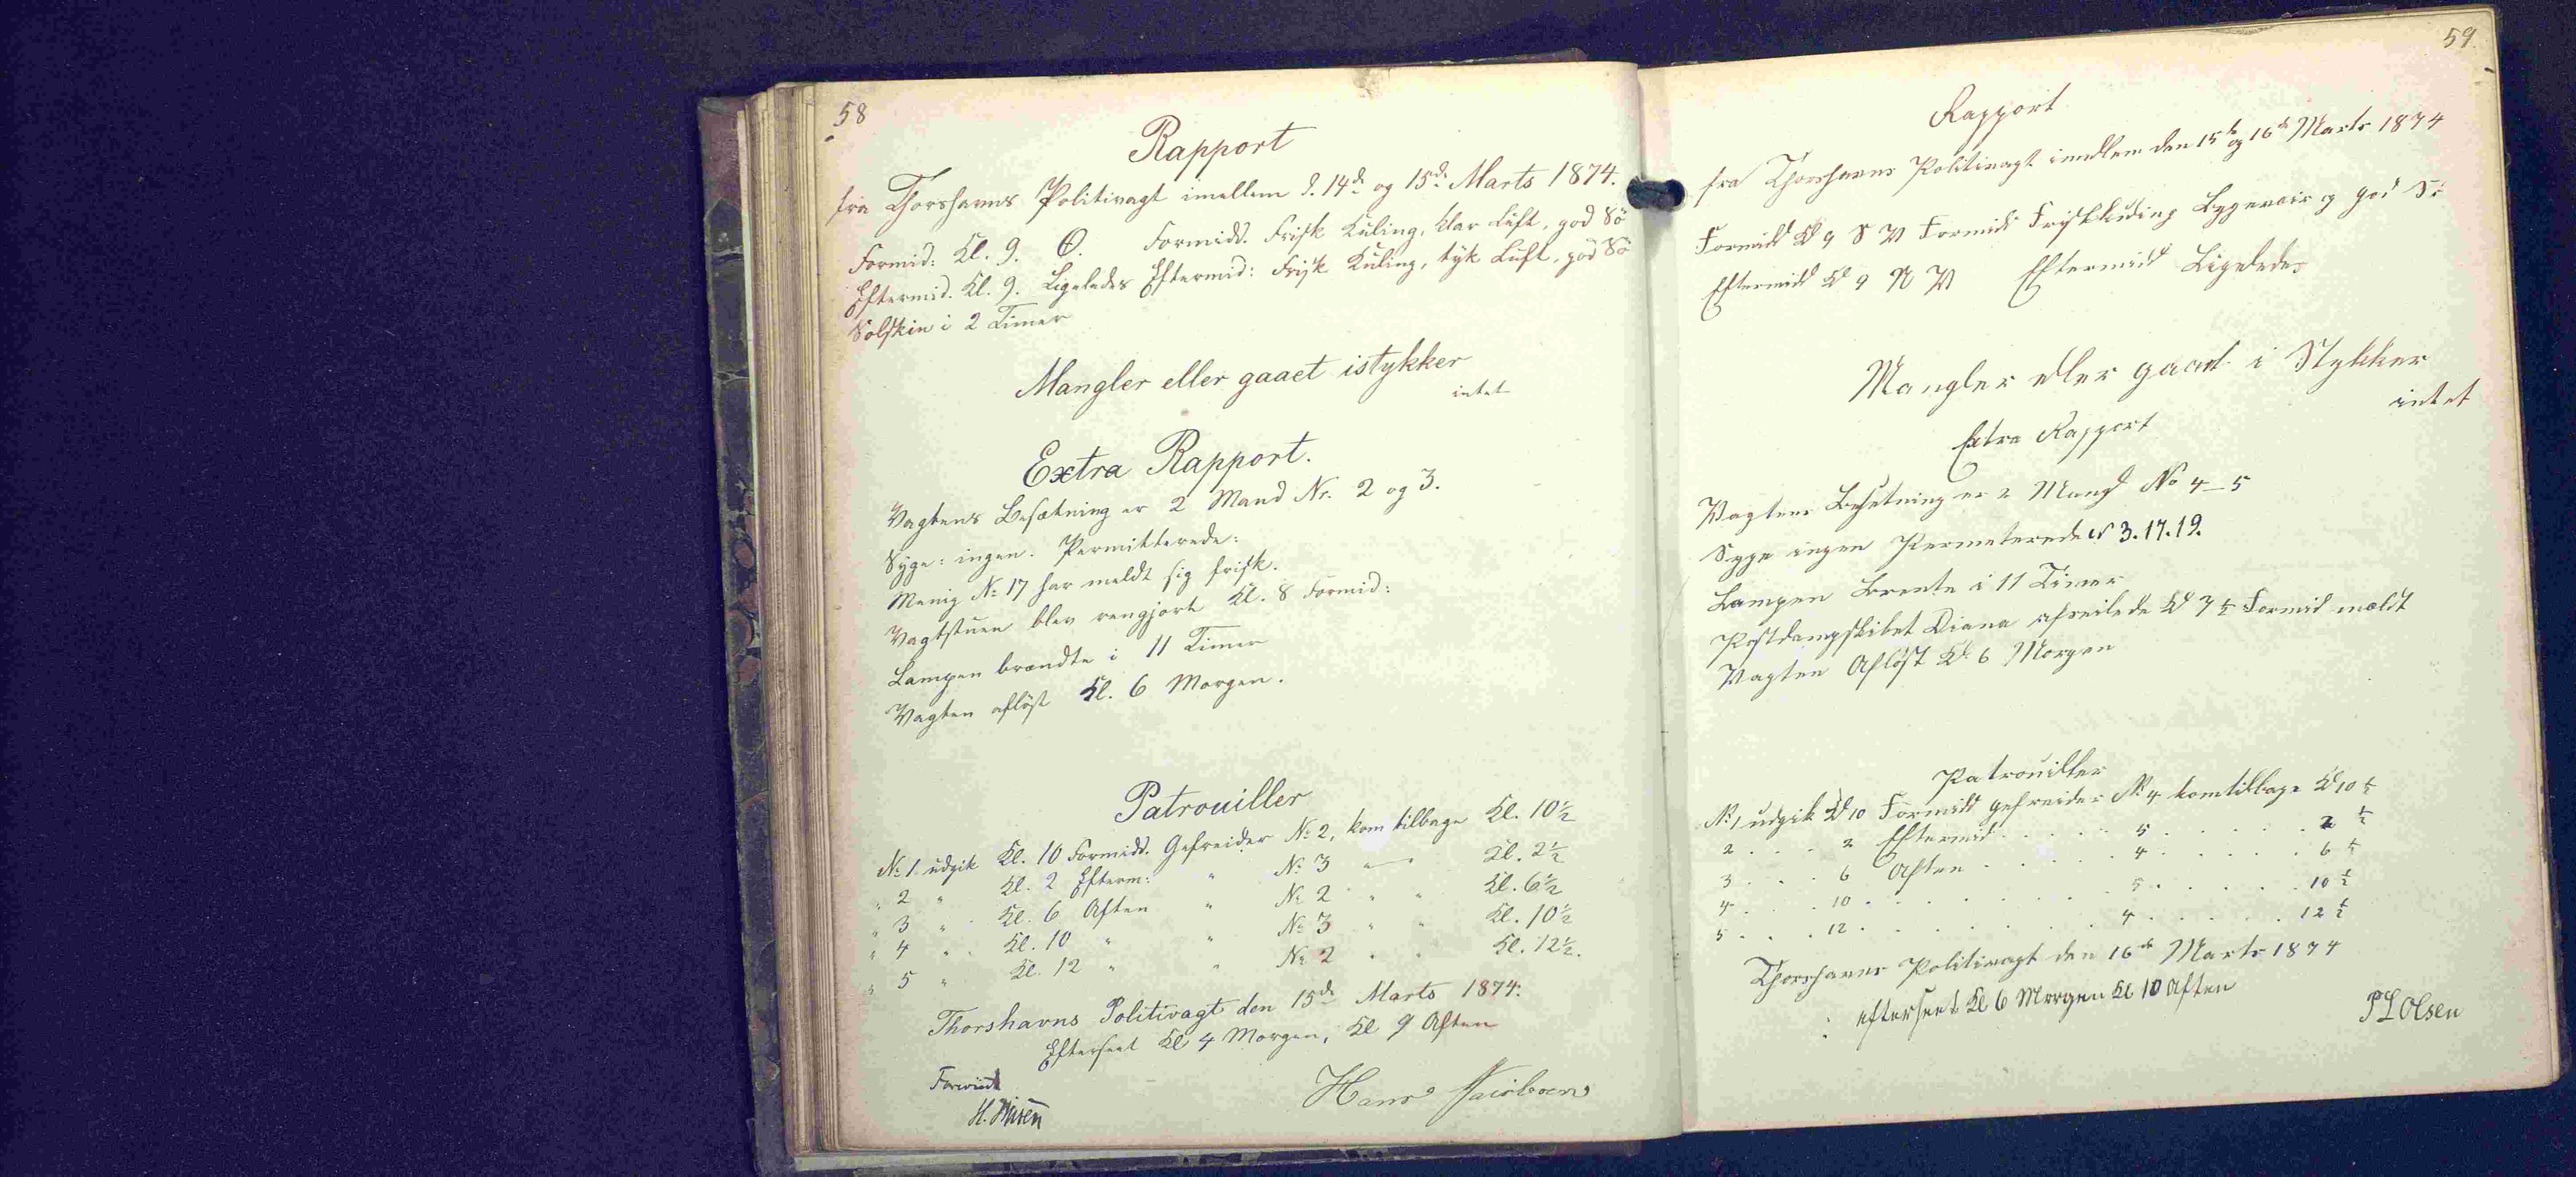 58
Rapport
fra Thorshavns Politivagt imellem d. 14de og 15de Marts 1874.
Formid: Kl. 9. O. Formidd. Frisk Kuling, klar Luft, god Sö
Eftermid. Kl. 9. Ligeledes Eftermid: Frisk Kuling, tyk Luft, god Sö
Solskin i 2 Timer
Mangler eller gaaet istykker
intet
Extra Rapport.
Vagtens Besætning er 2 Mand Nr. 2 og 3.
Syge: ingen. Permitterede:
Menig No 17 har meldt sig frisk.
Vagtstuen blev rengjort Kl. 8 Formid:
Lampen brændte i 11 Timer
Vagten aflöst Kl. 6 Morgen.
Patrouiller
No 1. udgik Kl. 10 Formidd. Gefreider No 2, kom tilbage Kl. 10½
" 2 " Kl. 2 Efterm: " No 3 " Kl. 2½
" 3 " Kl. 6 Aften " No 2 " " Kl. 6½
" 4 " Kl. 10 " " No 3 " " Kl. 10½
" 5 " Kl. 12 " " No 2 " " Kl. 12½.
Thorshavns Politivagt den 15de Marts 1874.
Efterseet Kl 4 Morgen, Kl 9 Aften
Forevist
Hans Jacobsen
H.
59
Rapport
fra Thorshavns Politivagt imellem den 15de og 16de Marts 1874
Formidd Kl 9 S V Formidd Frisk Kuling Bygeveir og god Sö
Eftermidd Kl 9 N V Eftermidd Ligeledes
Mangler eller gaaet i Stykker
intet
Extra Rapport
Vagtens Besetning er 2 Mand No 4–5
Syge ingen Permeterede No 3. 17. 19.
Lampen Brente i 11 Timer
Postdampskibet Diana afreilede Kl 7½ Formid mældt
Vagten Aflöst Kl. 6 Morgen
Patrouiller
No 1 udgik Kl 10 Formidd gefreider No 4 kom tilbage Kl 10½
2 . . . 2 Eftermid . . . . 5 . . . . . 2½
3 . . . 6 Aften . . . . . 4 . . . . . 6½
4 . . . 10 . . . . . . . 5 . . . . . 10½
5 . . . 12 . . . . . . . 4 . . . . . 12½
Thorshavns Politivagt den 16de Marts 1874
efterseet Kl 6 Morgen Kl 10 Aften
P L Olsen